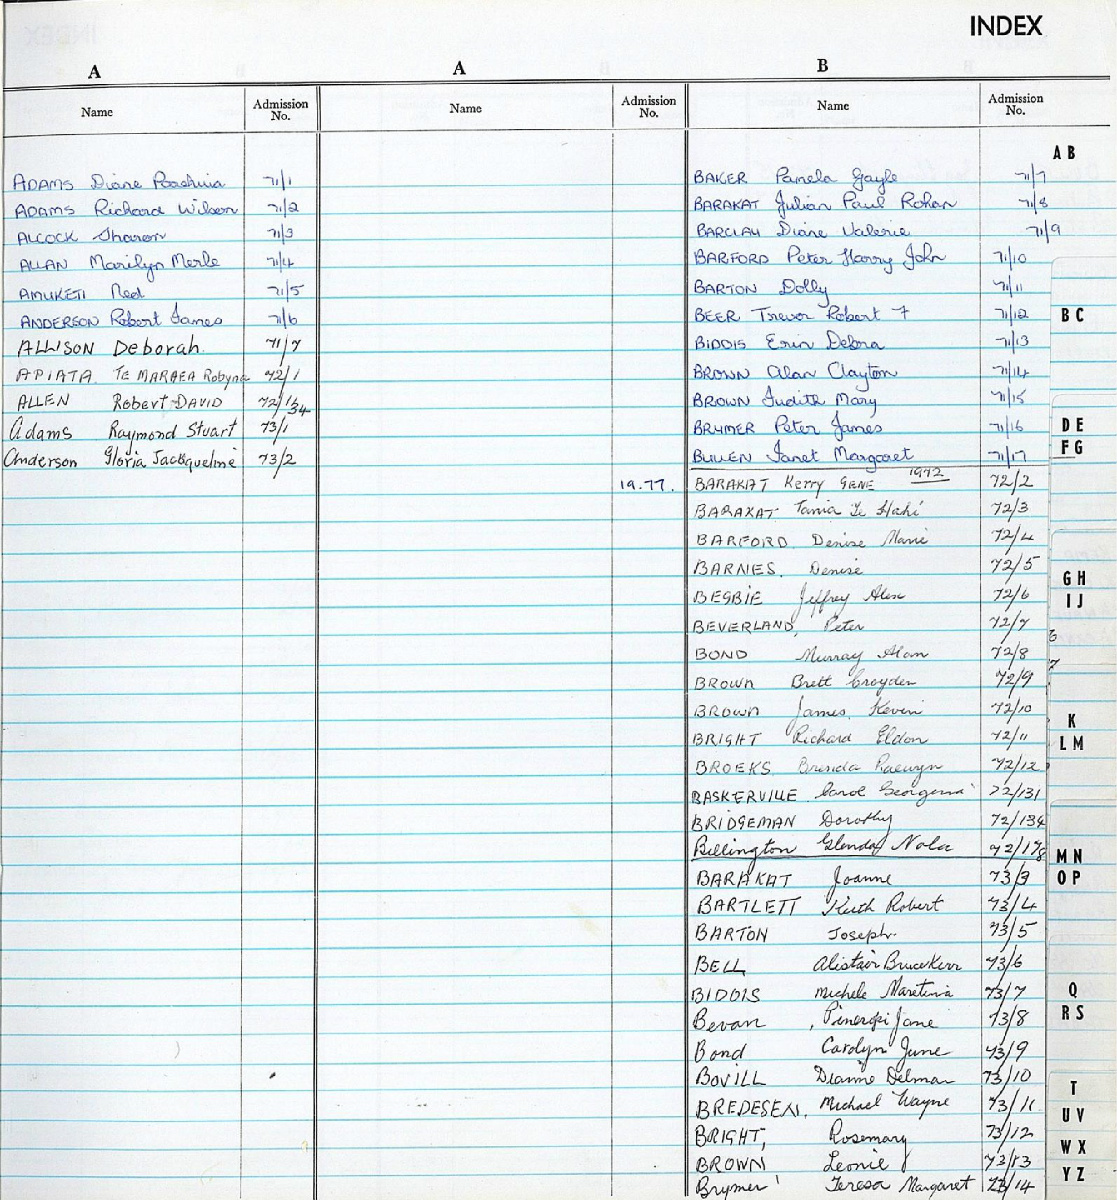 INDEX
A
Name Admission No.
ADAMS Diane 71/1
ADAMS Richard Wilson 71/2
ALCOCK Sharon 71/3
ALLAN Marilyn Merle 71/4
AMUKETI Ned 71/5
ANDERSON Robert James 71/6
ALLISON Deborah. 71/7
APIATA TE MARAEA Robyna 72/1
ALLEN Robert DAVID 72/134
Adams Raymond Stuart 73/1
Anderson Gloria Jacqueline 73/2
A
Name Admission No.
19.77.
B
Name Admission No.
BAKER Pamela Gayle 71/7
BARAKAT Julian Paul Rohan 71/8
BARCLAY Diane Valerie 71/9
BARFORD Peter Harry John 71/10
BARTON Dolly 71/11
BEER Trevor Robert F 71/12
BIDOIS Erin Debra 71/13
BROWN Alan Clayton 71/14
BROWN Judith Mary 71/15
BRYMER Peter James 71/16
BULLEN Janet Margaret 71/17
1972
BARAKAT Kerry GENE 72/2
BARAKAT Tania Te 72/3
BARFORD Denise Marie 72/4
BARNES, Denise 72/5
BEGBIE Jeffrey Alan 72/6
BEVERLAND, Peter 72/7
BOND Murray Alan 72/8
BROWN Brett Croyden 72/9
BROWN James Kevin 72/10
BRIGHT Richard Eldon 72/11
BROEKS Brenda Raewyn 72/12
BASKERVILLE Carol Georgina 72/131
BRIDGEMAN Dorothy 72/134
Billington Glenda Nola 72/178
BARAKAT Joanne 73/3
BARTLETT Keith Robert 73/4
BARTON Joseph. 73/5
BELL Alistair Bruce Kerr 73/6
BIDOIS Michele 73/7
Bevan, Jane 73/8
Bond Carolyn June 73/9
BOVILL Dianne Delmar 73/10
BREDESEN, Michael Wayne 73/11
BRIGHT, Rosemary 73/12
BROWN Leonie 73/13
Brymer Teresa Margaret 73/14
A B
B C
D E
F G
G H
I J
K
L M
M N
O P
Q
R S
T
U V
W X
Y Z